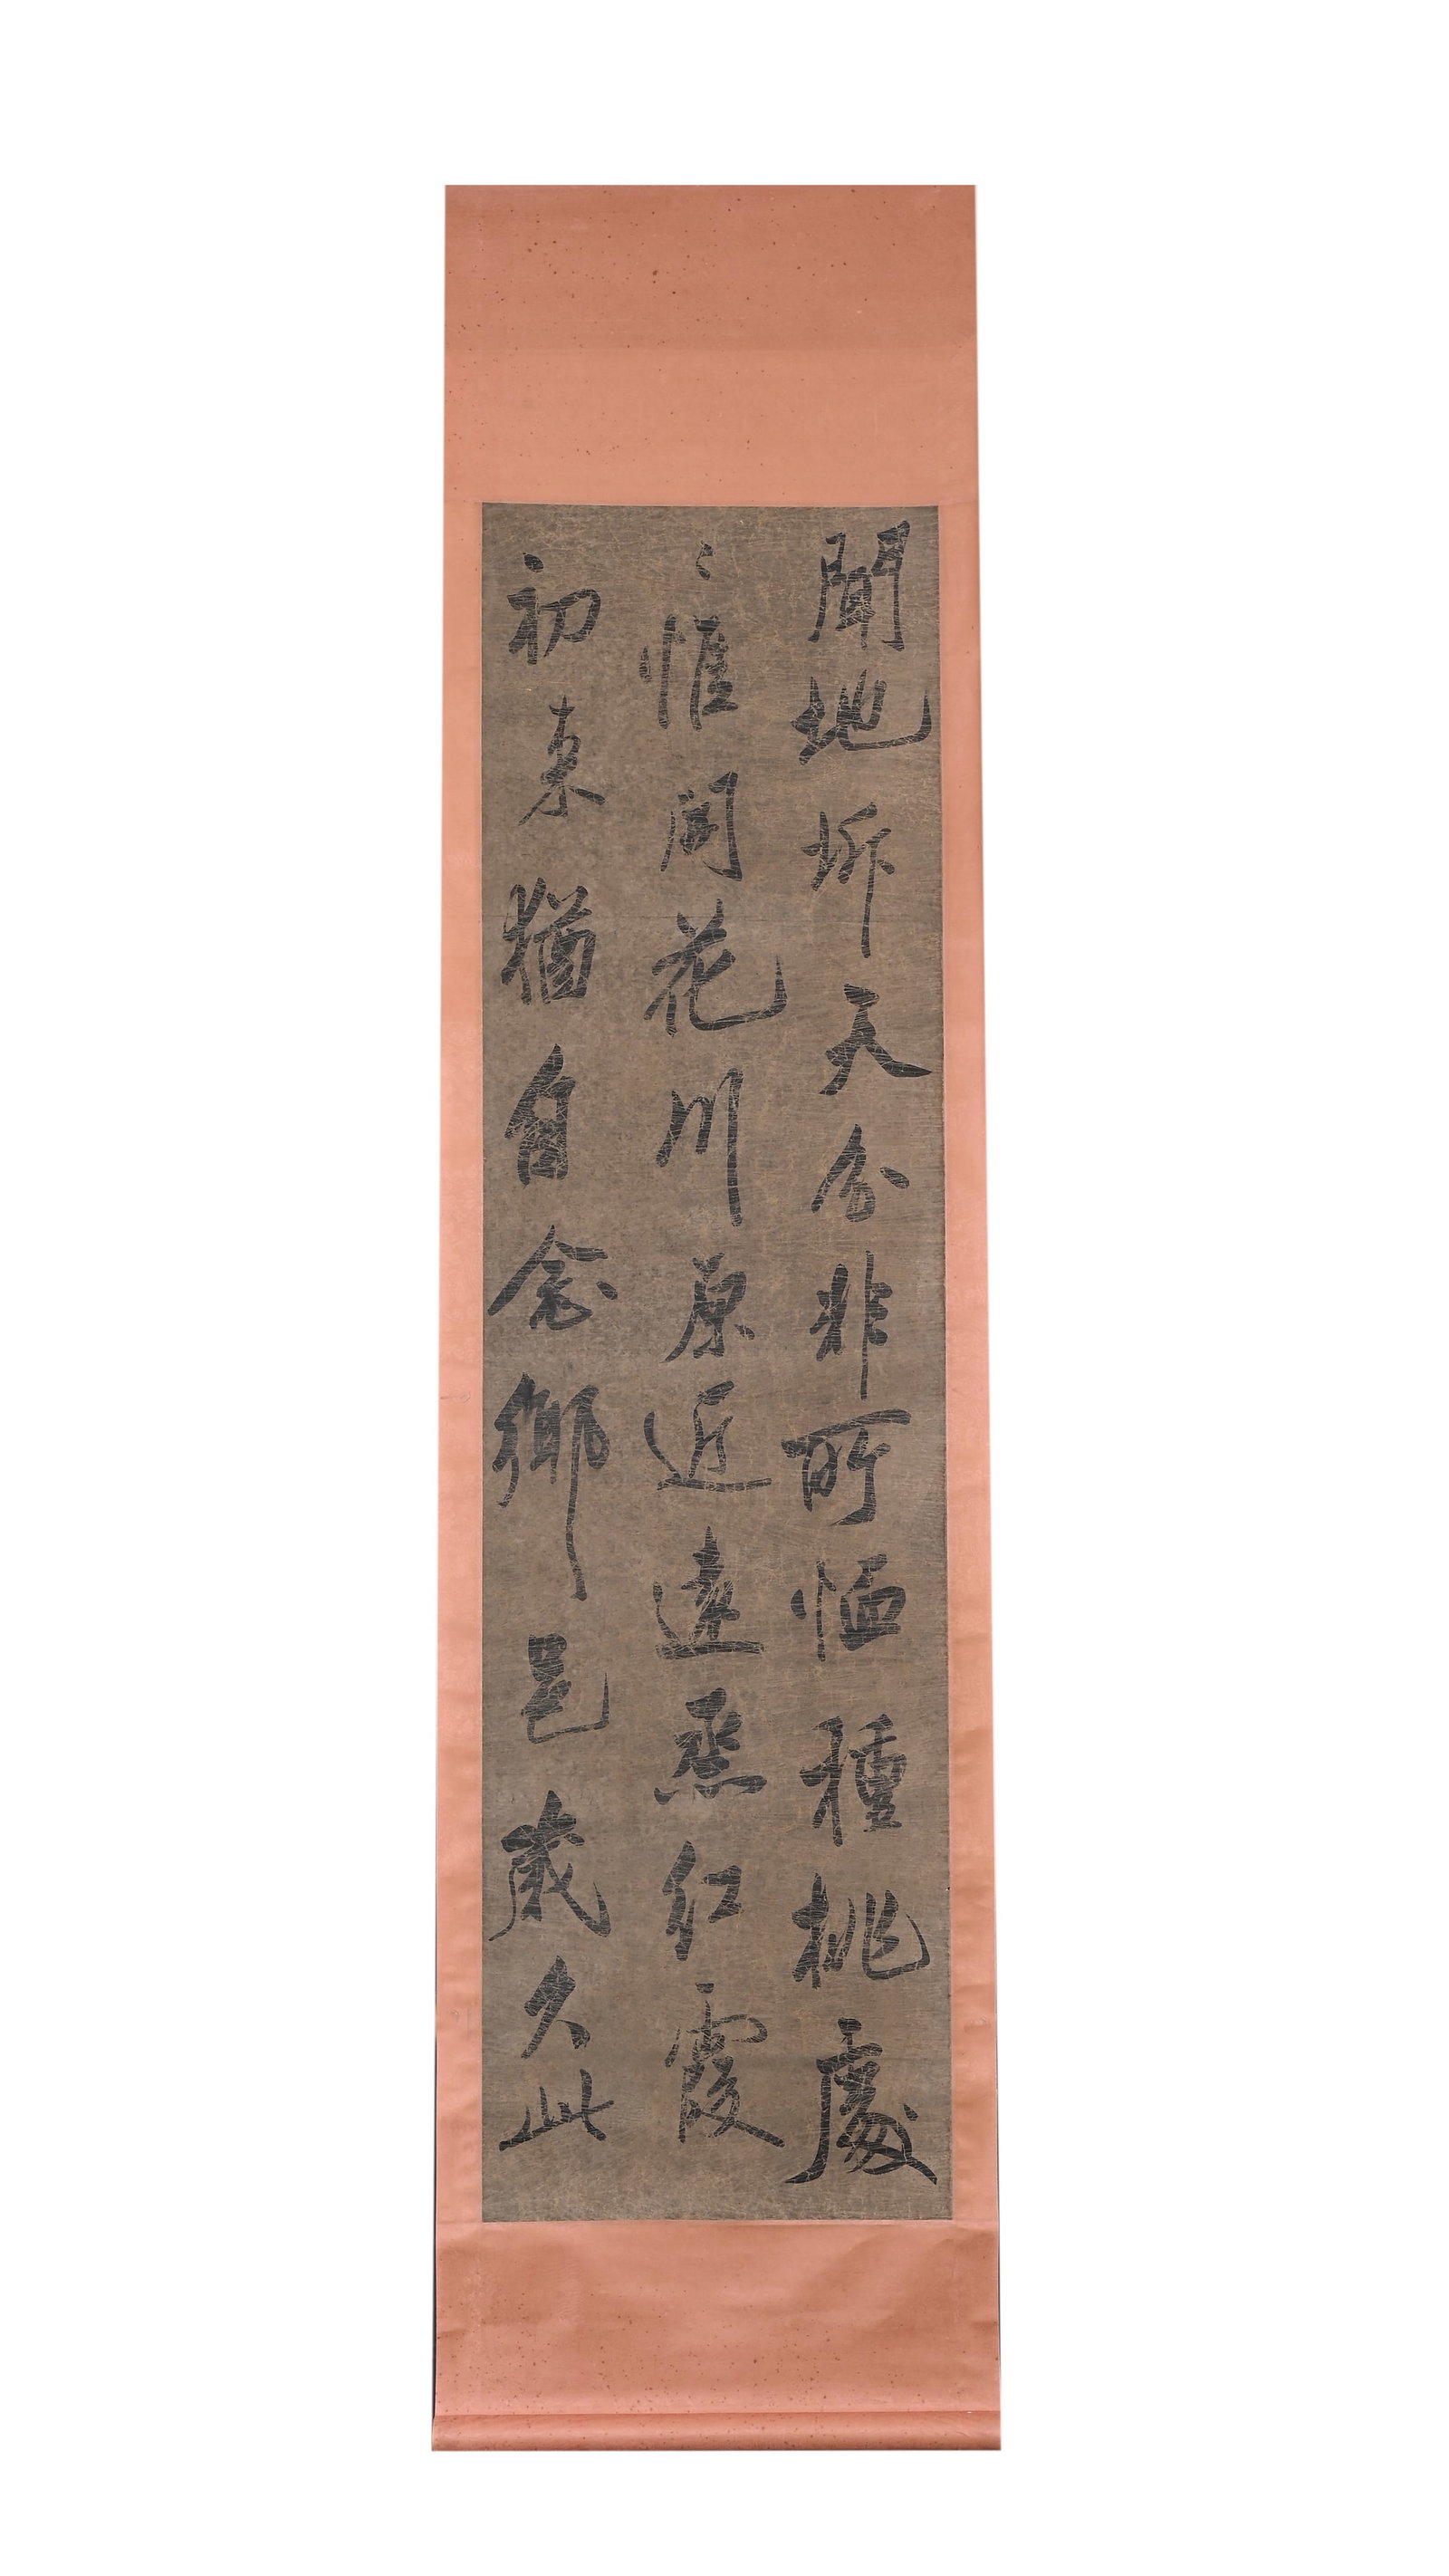 聞地坼天分非所恤種桃處
々惟開花川原近遠烝紅霞
初来猶自念鄉邑歲久此